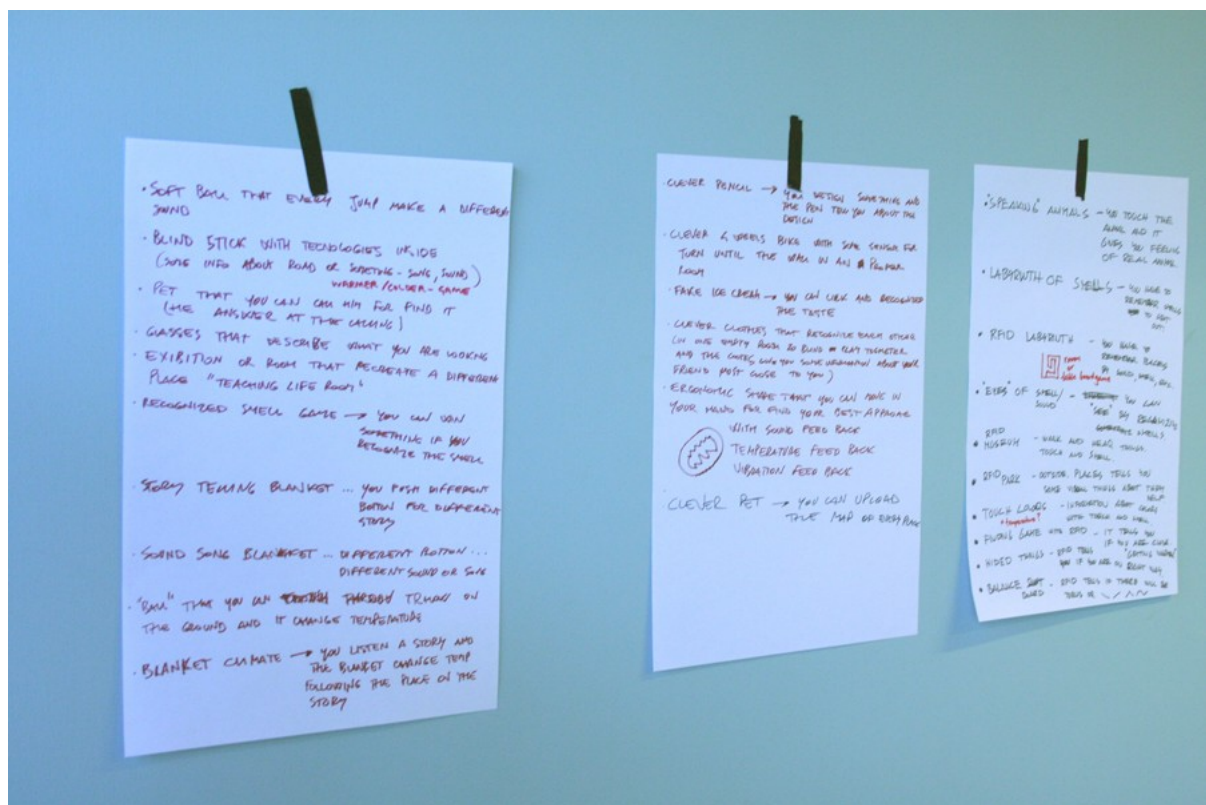 · SOFT BALL THAT EVERY JUMP MAKE A DIFFERENT
SOUND
· BLIND STICK WITH TECNOLOGIES INSIDE
(SOME INFO ABOUT ROAD OR SOMETING - SONG, SOUND)
WARMER/COLDER - GAME
· PET THAT YOU CAN CALL HIM FOR FIND IT
(HE ANSWER AT THE CALLING)
· GLASSES THAT DESCRIBE WHAT YOU ARE LOOKING
· EXIBITION OR ROOM THAT RECREATE A DIFFERENT
PLACE "TEACHING LIFE ROOM"
· RECOGNIZED SMELL GAME → YOU CAN WIN
SOMETHING IF YOU
RECOGNIZE THE SMELL
· STORY TELLING BLANKET ... YOU PUSH DIFFERENT
BOTTON FOR DIFFERENT
STORY
· SOUND SONG BLANKET ... DIFFERENT BOTTON ...
DIFFERENT SOUND OR SONG
· "BALL" THAT YOU CAN THROW ON
THE GROUND AND IT CHANGE TEMPERATURE
· BLANKET CLIMATE → YOU LISTEN A STORY AND
THE BLANKET CHANGE TEMP
FOLLOWING THE PLACE ON THE
STORY
· CLEVER PENCIL → YOU DESIGN SOMETHING AND
THE PEN TELL YOU ABOUT THE
DESIGN
· CLEVER 4 WEELS BIKE WITH SOME SENSOR FOR
TURN UNTIL THE WALL IN AN PROPER
ROOM
· FAKE ICE CREAM → YOU CAN LICK AND RECOGNIZED
THE TASTE
· CLEVER CLOTHES THAT RECOGNIZE EACH OTHER
(IN ONE EMPTY ROOM 20 BLIND PLAY TOGHETER
AND THE CLOTES GIVE YOU SOME INFORMATION ABOUT YOUR
FRIEND MOST CLOSE TO YOU)
· ERGONOMIC SHAPE THAT YOU CAN MOVE IN
YOUR HAND FOR FIND YOUR BEST
WITH SOUND FEED BACK
TEMPERATURE FEED BACK
VIBRATION FEED BACK
· CLEVER PET → YOU CAN UPLOAD
THE MAP OF EVERY PLACE
• "SPEAKING" ANIMALS - YOU TOUCH THE
ANIMAL AND IT
GIVES YOU FEELING
OF REAL ANIMAL
• LABYRINTH OF SMELLS - YOU HAVE TO
REMEMBER SMELLS
TO GET
OUT!
• RFID LABYRINTH - YOU HAVE TO
REMEMBER PLACES
BY SOUND, SMELL, ETC.
room
or
table boardgame
• "EYES" OF SMELL/ - YOU CAN
SOUND "SEE" BY RECOGNIZING
SMELLS.
• RFID
MUSEUM - WALK AND HEAR THINGS.
TOUCH AND SMELL.
• RFID PARK - OUTSIDE. PLACES TELLS YOU
SOME THINGS ABOUT THEM
HELP
• TOUCH COLORS - INFORMATION ABOUT COLORS
*temperature? WITH TOUCH AND SMELL
• GAME WITH RFID - IT TELLS YOU
IF YOU ARE CLOSE.
• HIDED THINGS - RFID TELLS "GETTING WARMER"
YOU IF YOU ARE IN RIGHT WAY
• BALANCE - RFID TELLS IF THERE WILL BE
BOARD